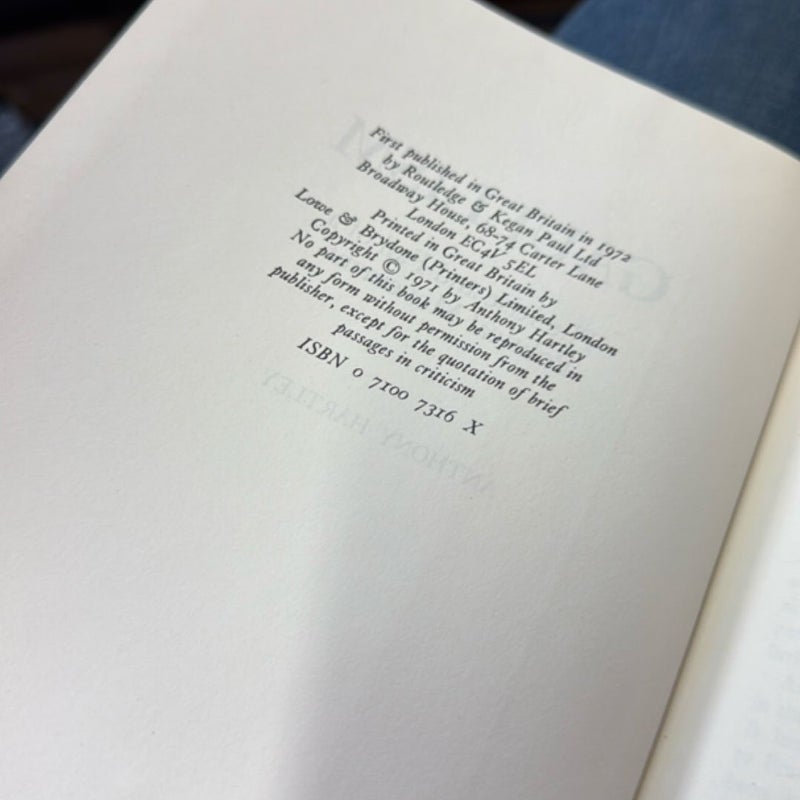 First published in Great Britain in 1972
by Routledge & Kegan Paul Ltd
Broadway House, 68-74 Carter Lane
London EC4V 5EL
Printed in Great Britain by
Lowe & Brydone (Printers) Limited, London
Copyright © 1971 by Anthony Hartley
No part of this book may be reproduced in
any form without permission from the
publisher, except for the quotation of brief
passages in criticism
ISBN 0 7100 7316 X
ANTHONY HARTLEY